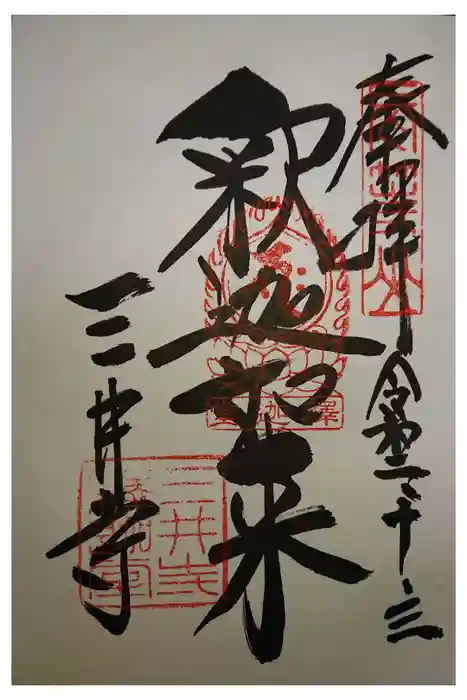 奉拝 令和二、十、三
釈迦如来
三井寺
三井寺